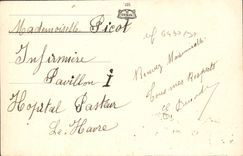 Mademoiselle Picot
Infirmière
Pavillon I
Hopital Pasteur
Le Havre
Recevez Mademoiselle
Tous mes Respects